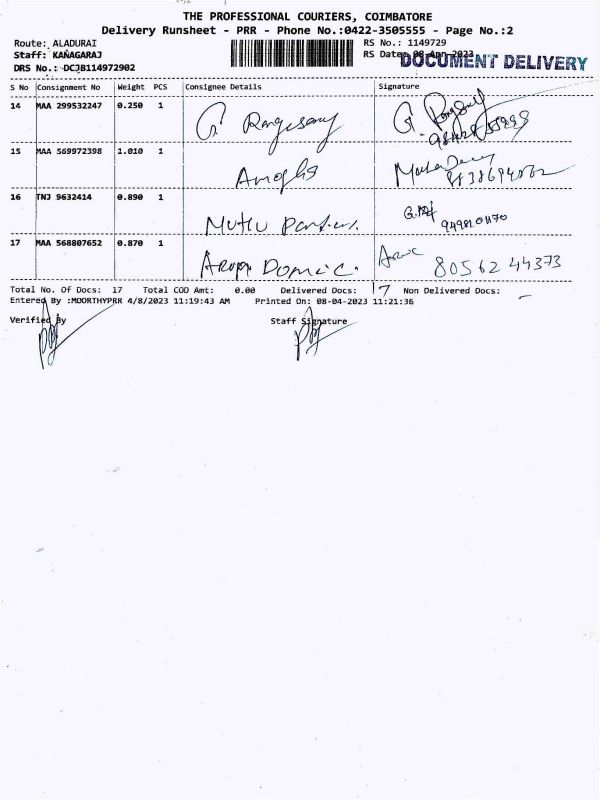 THE PROFESSIONAL COURIERS, COIMBATORE
Delivery Runsheet - PRR - Phone No.:0422-3505555 - Page No.:2
Route: ALADURAI RS No.: 1149729
Staff: KANAGARAJ RS Date: 08-Apr-2023
DOCUMENT DELIVERY
DRS No.: DCJB114972902
S No Consignment No Weight PCS Consignee Details Signature
14 MAA 299532247 0.250 1 G
15 MAA 569972398 1.010 1
16 TNJ 9632414 0.890 1 Muthu
17 MAA 568807652 0.870 1 8056244373
Total No. Of Docs: 17 Total COD Amt: 0.00 Delivered Docs: 17 Non Delivered Docs: -
Entered By :MOORTHYPRR 4/8/2023 11:19:43 AM Printed On: 08-04-2023 11:21:36
Verified By Staff Signature